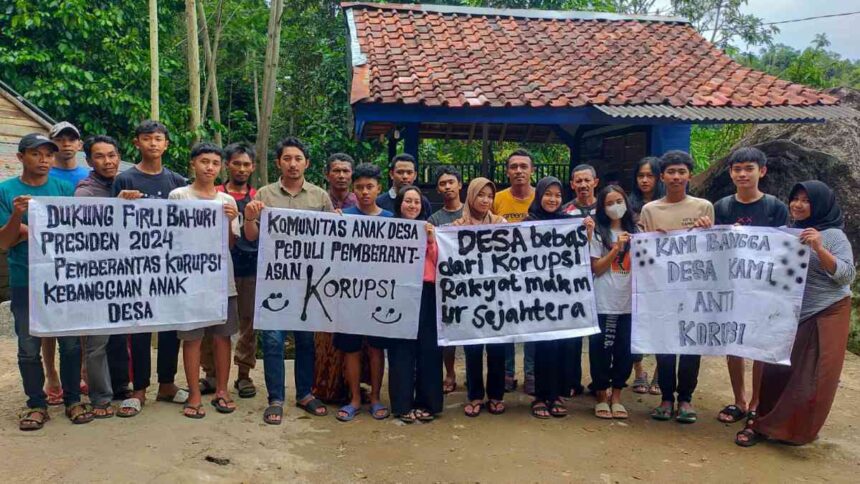 DUKUNG FIRLI BAHURI
PRESIDEN 2024
PEMBERANTAS KORUPSI
KEBANGGAAN ANAK
DESA
KOMUNITAS ANAK DESA
PEDULI PEMBERANT-
ASAN KORUPSI
DESA bebas
dari Korupsi
Rakyat makm
ur Sejahtera
KAMI BANGGA
DESA KAMI
ANTI
KORUPSI